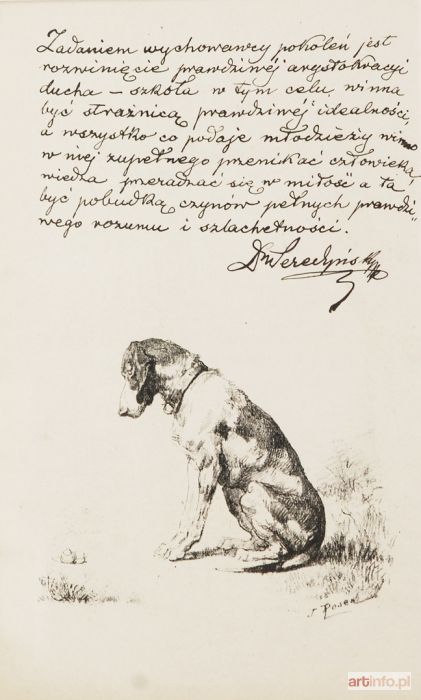 Zadaniem wychowawcy pokoleń jest
rozwinięcie prawdziwéj arystokracyi
ducha – szkoła w tym celu winna
być strażnicą prawdziwéj idealności,
a wszystko co podaje młodzieży winno
w niej zupełnego przenikać człowieka,
wiedza przeradzać się w miłość a ta
być pobudką czynów pełnych prawdzi„
wego rozumu i szlachetności.
Dr Seredyński
J. Rosen
artinfo.pl